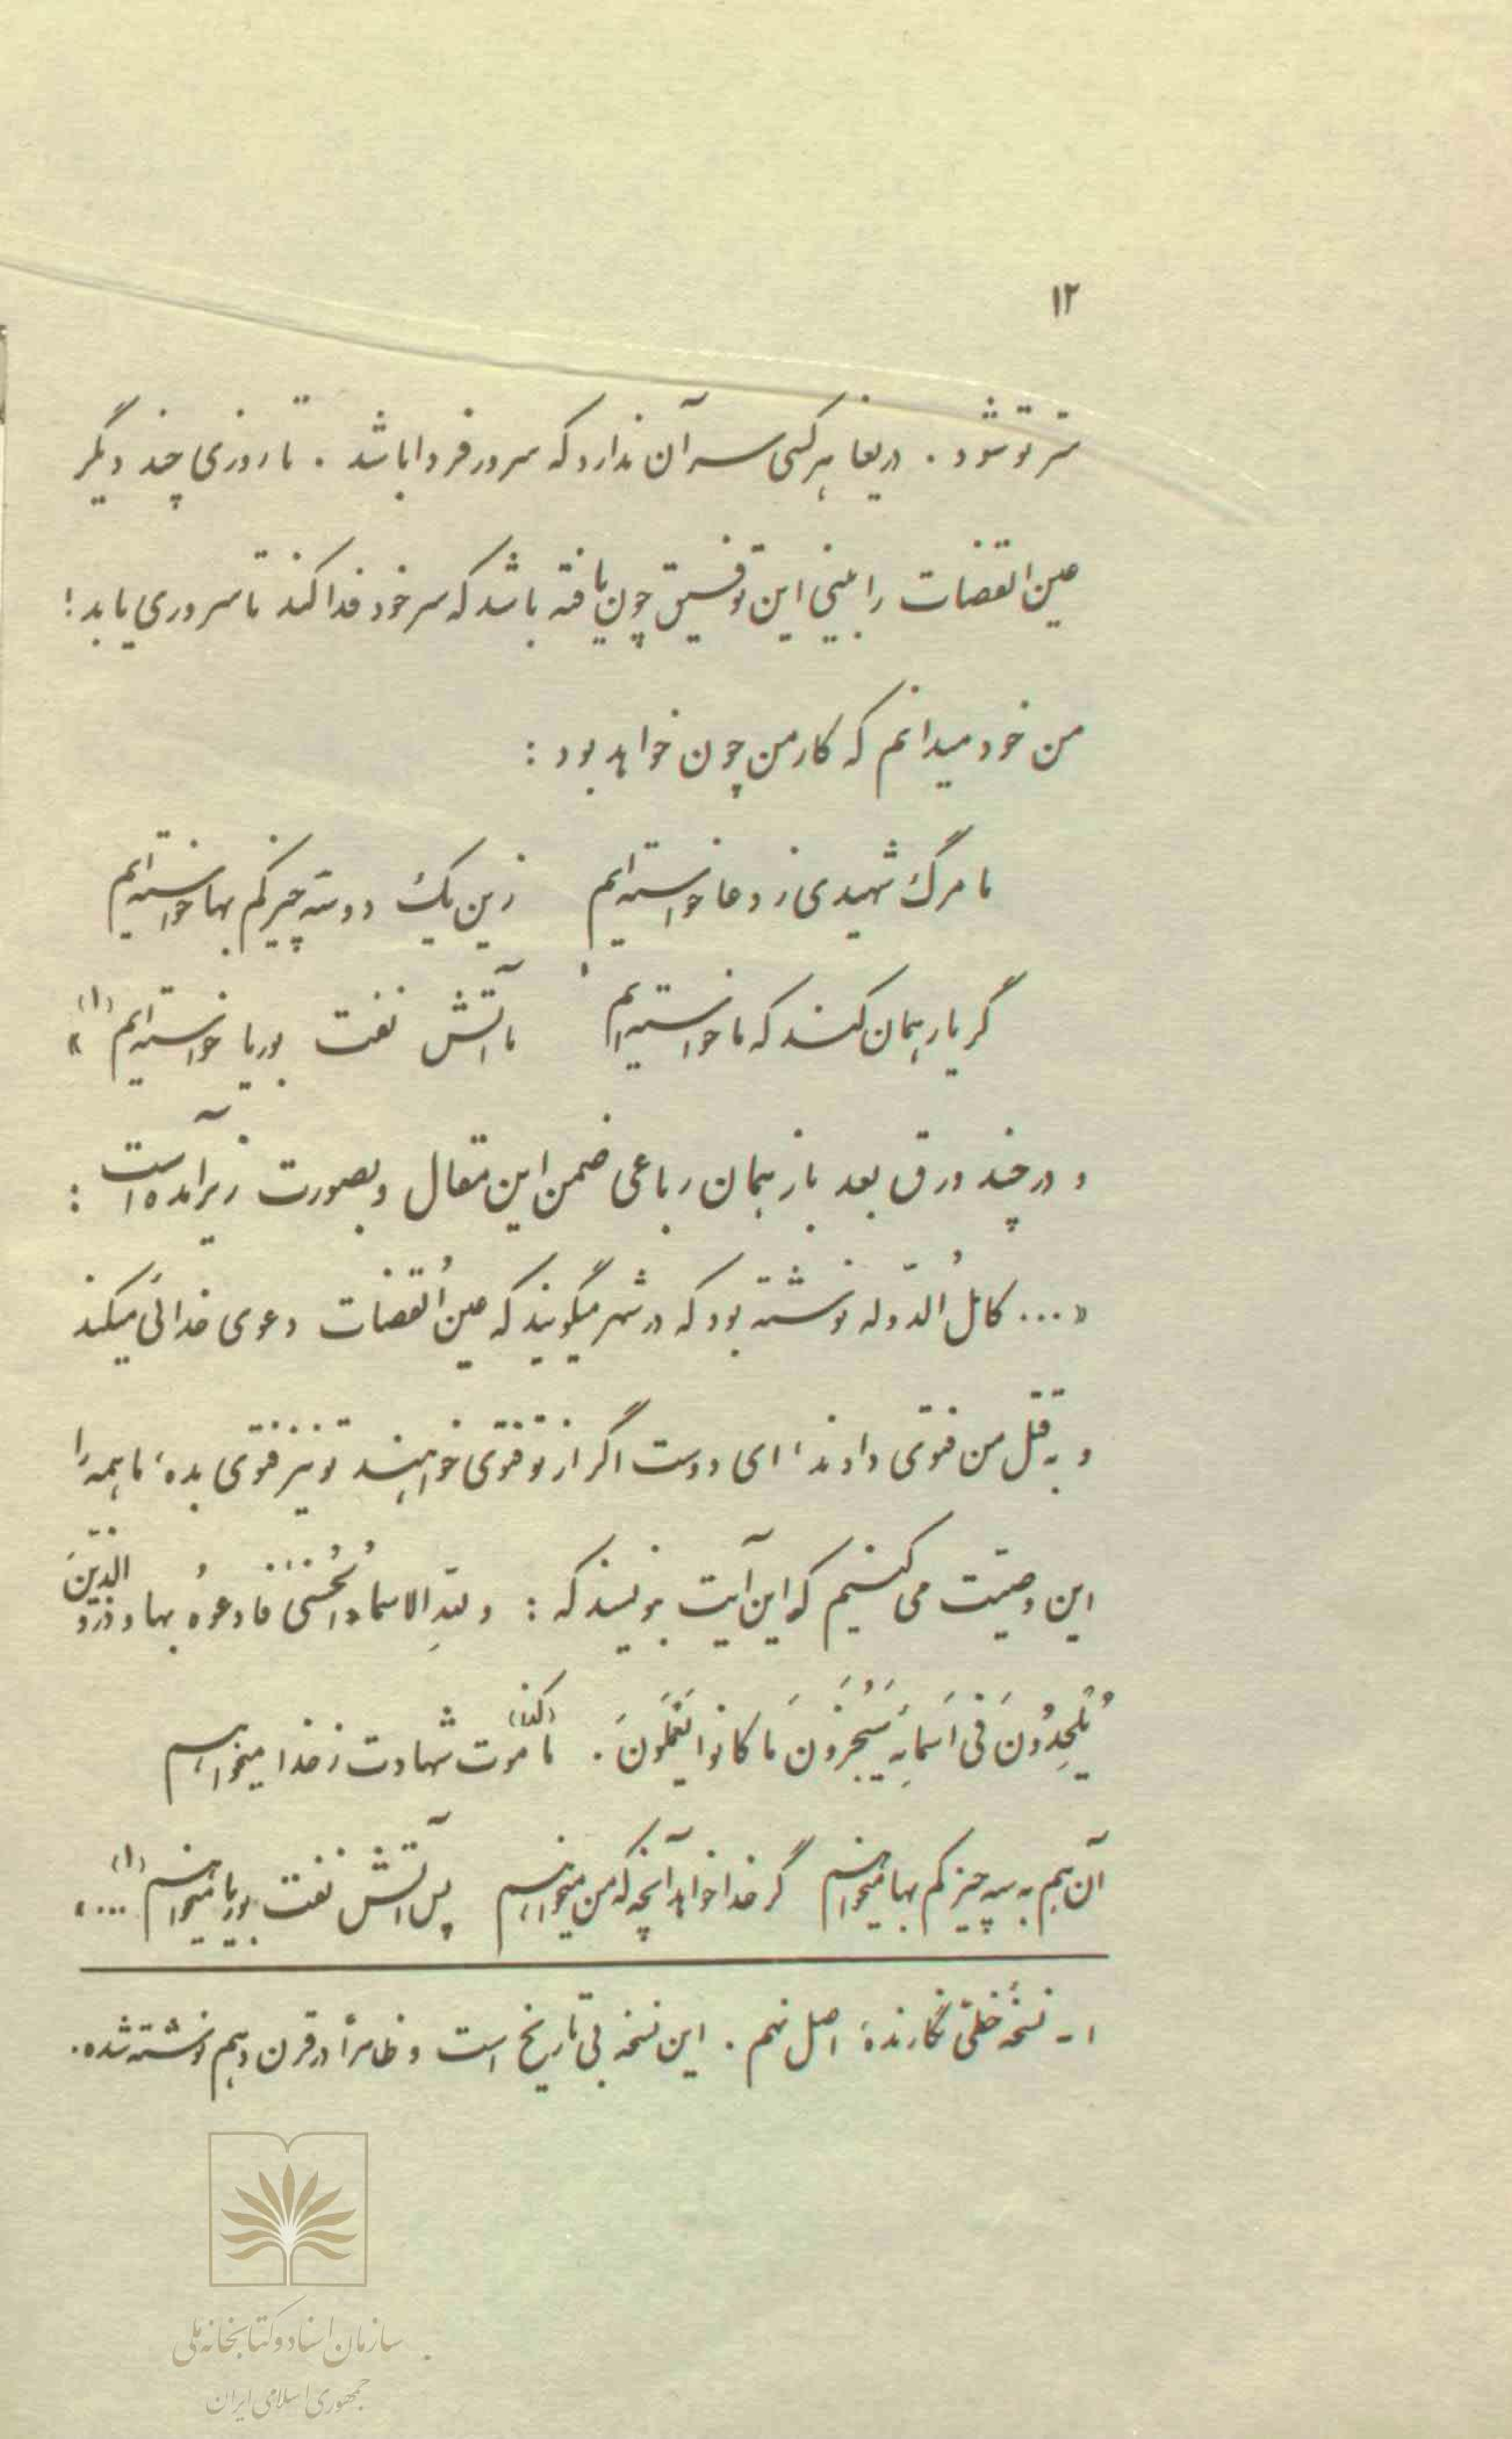 ۱۲
ستر تو شود . دریغا هر کسی سر آن ندارد که سرور فردا باشد . تا روزی چند دیگر
عین القضات را بینی این توفیق چون یافته باشد که سر خود فدا کند تا سروری یابد !
من خود میدانم که کار من چون خواهد بود :
ما مرگ شهیدی ز دعا خواسته‌ایم زین یک دو سه چیز کم بها خواسته‌ایم
گر یار همان کند که ما خواسته‌ایم ما آتش نفت بوریا خواسته‌ایم (۱) »
و در چند ورق بعد باز همان رباعی ضمن این مقال و بصورت زیر آمده است :
« ... کاملُ الدّوله نوشته بود که در شهر میگویند که عینُ القضات دعوی خدائی میکند
و به قتل من فتوی دادند ، ای دوست اگر از تو فتوی خواهند تو نیز فتوی بده ، ما همه را
این وصیّت می کنیم که این آیت بنویسند که : و لله الاسماءُ الحُسنیٰ فادعوُه بها و ذرو الّذینَ
یُلْحِدُونَ فی اَسمایِه سَیُجْزَونَ ما کانوا یَعْمَلُونَ . ما (کذا) موت شهادت ز خدا میخواهیم
آن هم به سه چیز کم بها میخواهیم گر خدا خواهد آنچه که من میخواهیم پس آتش نفت بوریا میخواهیم (۱) ... »
۱ ـ نسخهٔ خطّی نگارندهٔ اصل نهم . این نسخه بی تاریخ است و ظاهراً در قرن دهم نوشته شده .
سازمان اسناد و کتابخانه ملی
جمهوری اسلامی ایران